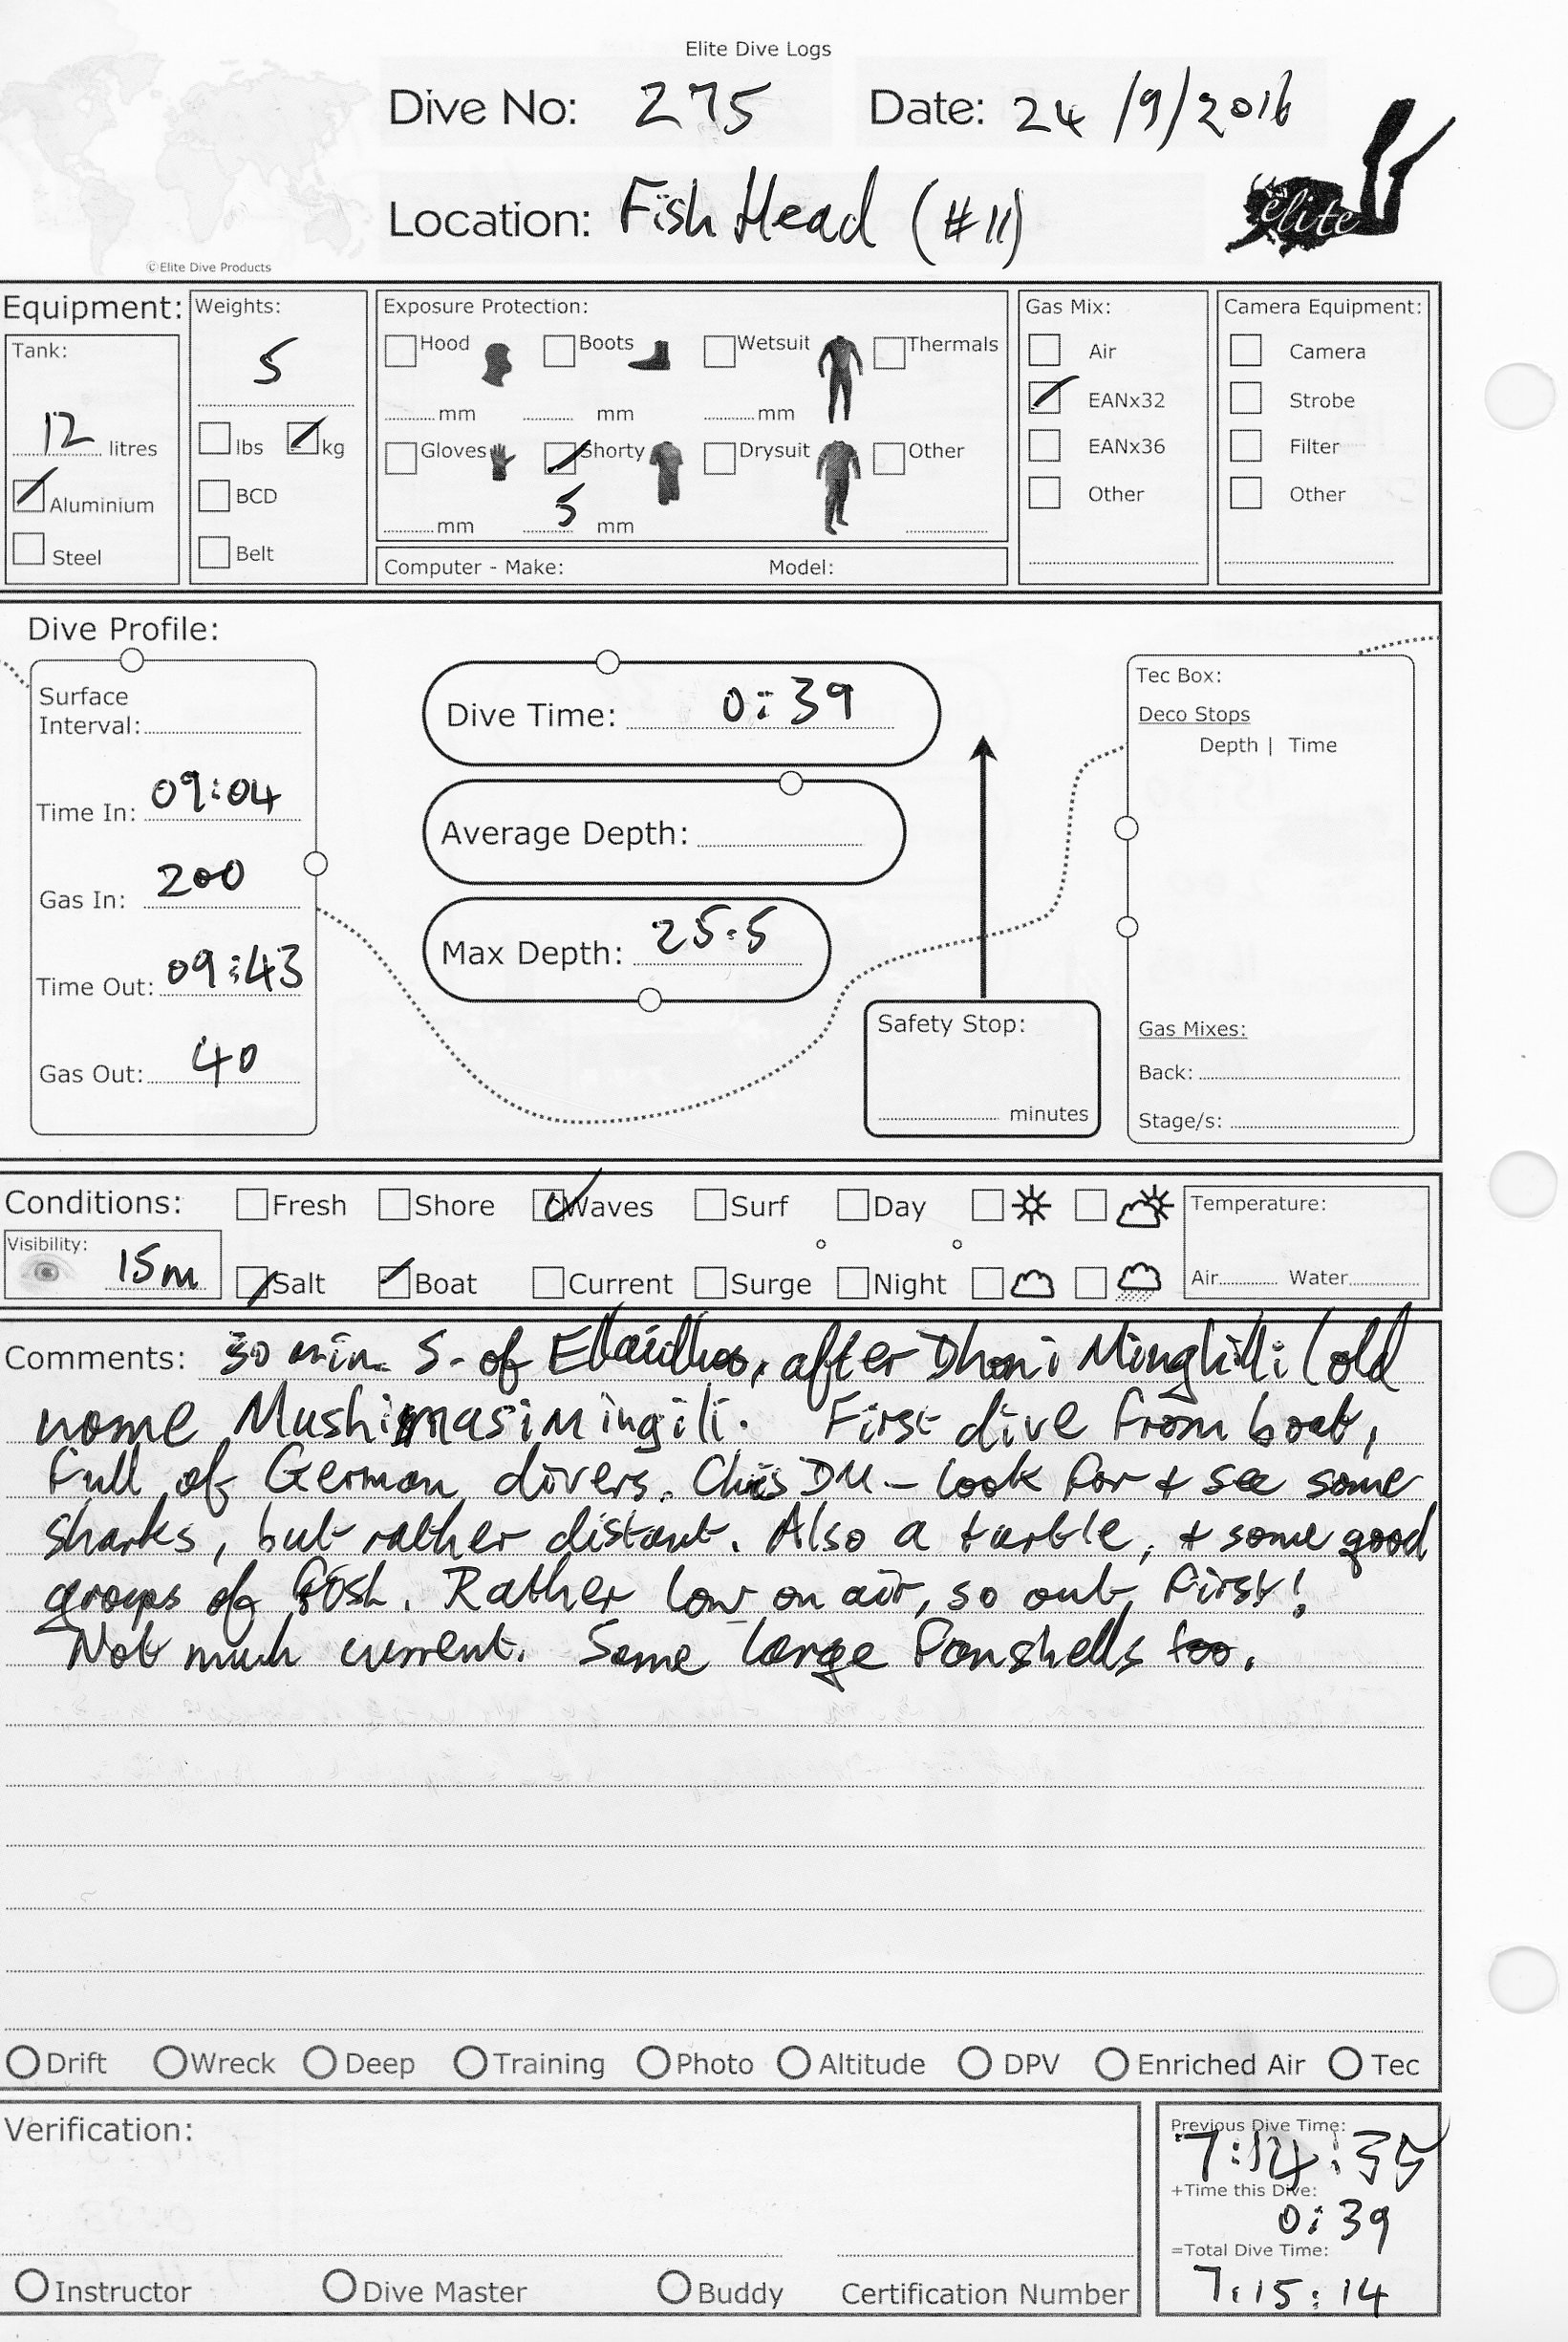 Elite Dive Logs
Dive No: 275 Date: 24/9/2016
Location: Fish Head (#11)
elite
©Elite Dive Products
Equipment: Weights: Exposure Protection: Gas Mix: Camera Equipment:
Tank: 5 Hood Boots Wetsuit Thermals Air Camera
mm mm mm EANx32 Strobe
12 litres lbs kg Gloves Shorty Drysuit Other EANx36 Filter
Aluminium BCD Other Other
mm 5 mm
Steel Belt Computer - Make: Model:
Dive Profile:
Surface
Interval:
Time In: 09:04
Gas In: 200
Time Out: 09:43
Gas Out: 40
Dive Time: 0:39
Average Depth:
Max Depth: 25.5
Safety Stop:
minutes
Tec Box:
Deco Stops
Depth | Time
Gas Mixes:
Back:
Stage/s:
Conditions: Fresh Shore Waves Surf Day Temperature:
Visibility: 15m Salt Boat Current Surge Night Air Water
Comments: 30 min. S. of after Dhoni Minghilli (old
name Mushimasimingili. First dive from boat,
full of German divers. Chris DM - look for + see some
sharks, but rather distant. Also a turtle, + some good
groups of fish. Rather low on air, so out first!
Not much current. Some large Panshells too.
Drift Wreck Deep Training Photo Altitude DPV Enriched Air Tec
Verification:
Instructor Dive Master Buddy Certification Number
Previous Dive Time:
7:14:35
+Time this Dive:
0:39
=Total Dive Time:
7:15:14